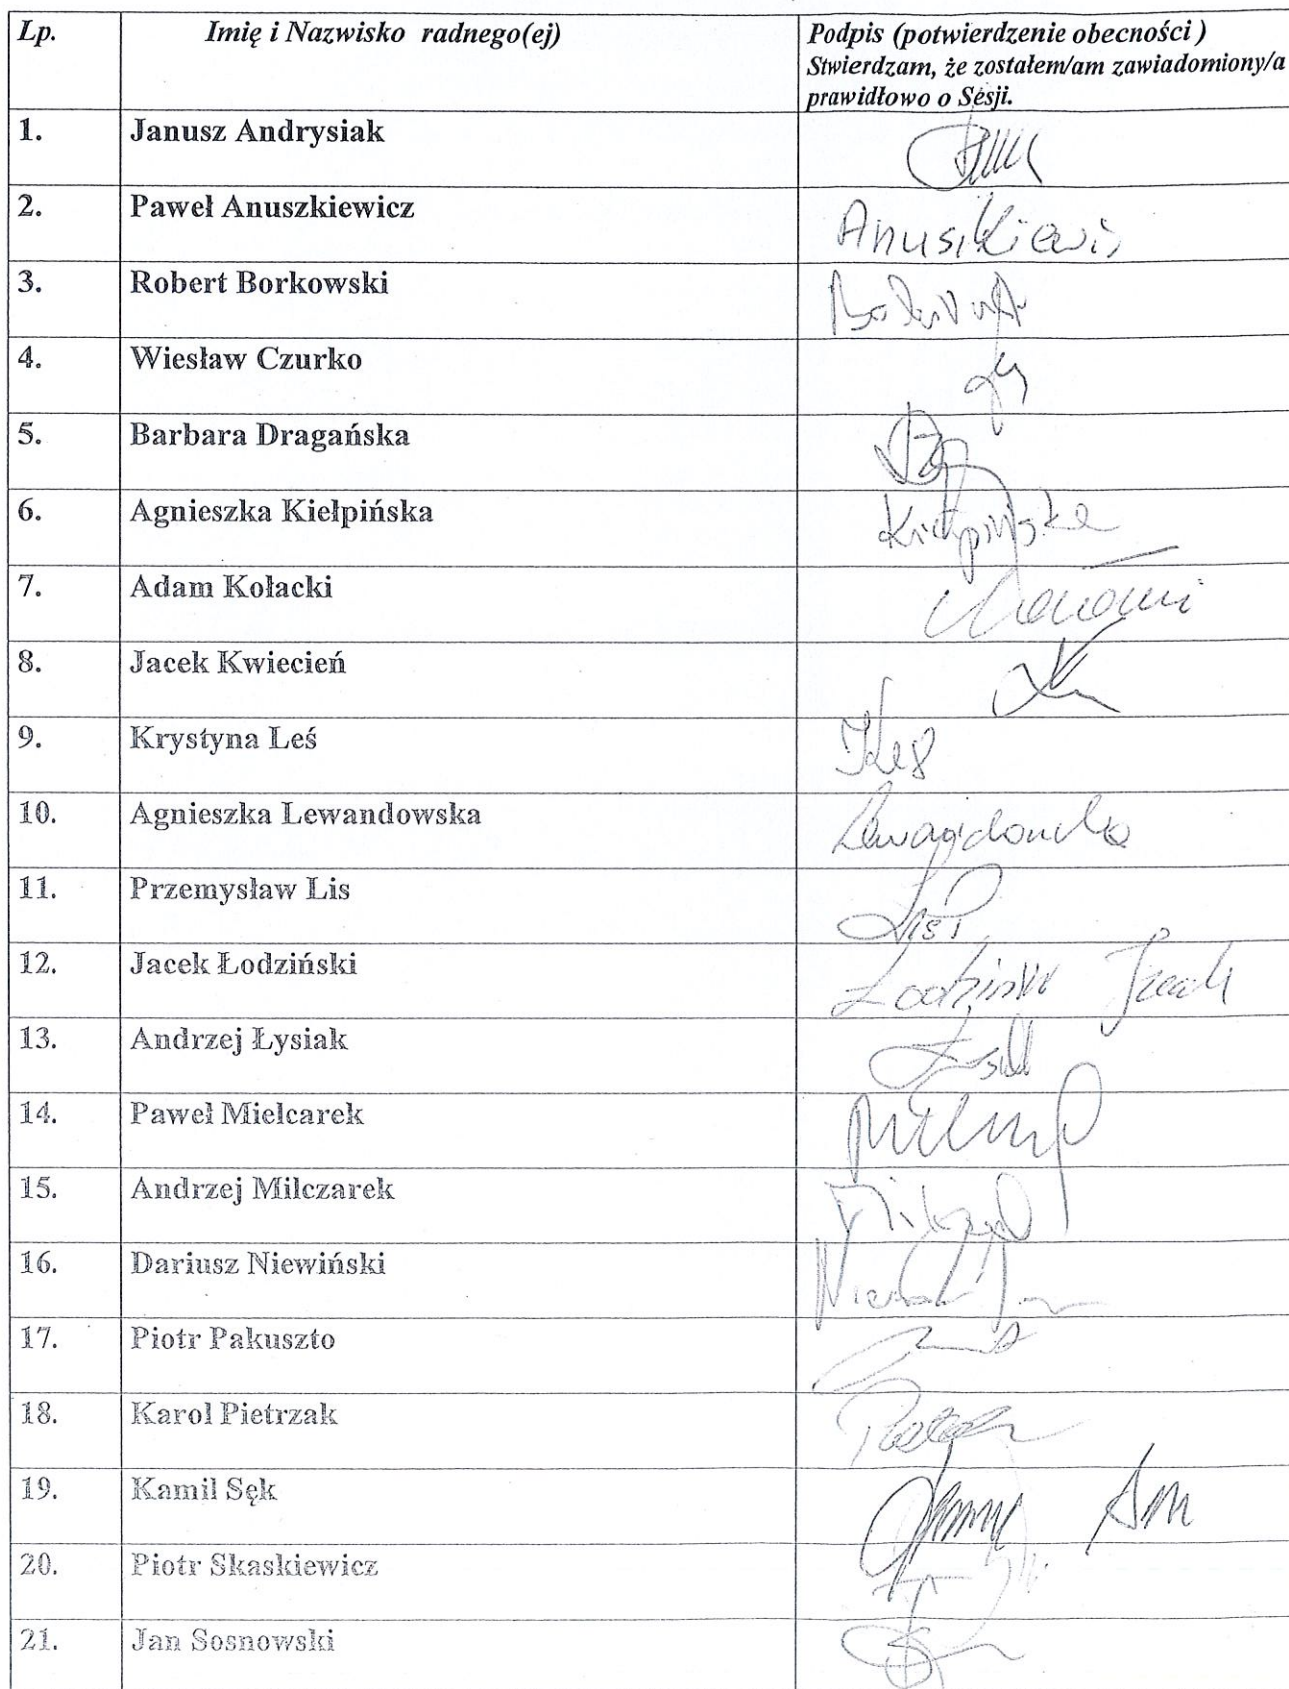 Lp. Imię i Nazwisko radnego(ej) Podpis (potwierdzenie obecności )
Stwierdzam, że zostałem/am zawiadomiony/a
prawidłowo o Sesji.
1. Janusz Andrysiak
2. Paweł Anuszkiewicz
3. Robert Borkowski
4. Wiesław Czurko
5. Barbara Dragańska
6. Agnieszka Kiełpińska Kiełpińska
7. Adam Kołacki
8. Jacek Kwiecień
9. Krystyna Leś
10. Agnieszka Lewandowska Lewandowska
11. Przemysław Lis
12. Jacek Łodziński Łodziński Jacek
13. Andrzej Łysiak
14. Paweł Mielcarek
15. Andrzej Milczarek
16. Dariusz Niewiński
17. Piotr Pakuszto
18. Karol Pietrzak
19. Kamil Sęk
20. Piotr Skaskiewicz
21. Jan Sosnowski